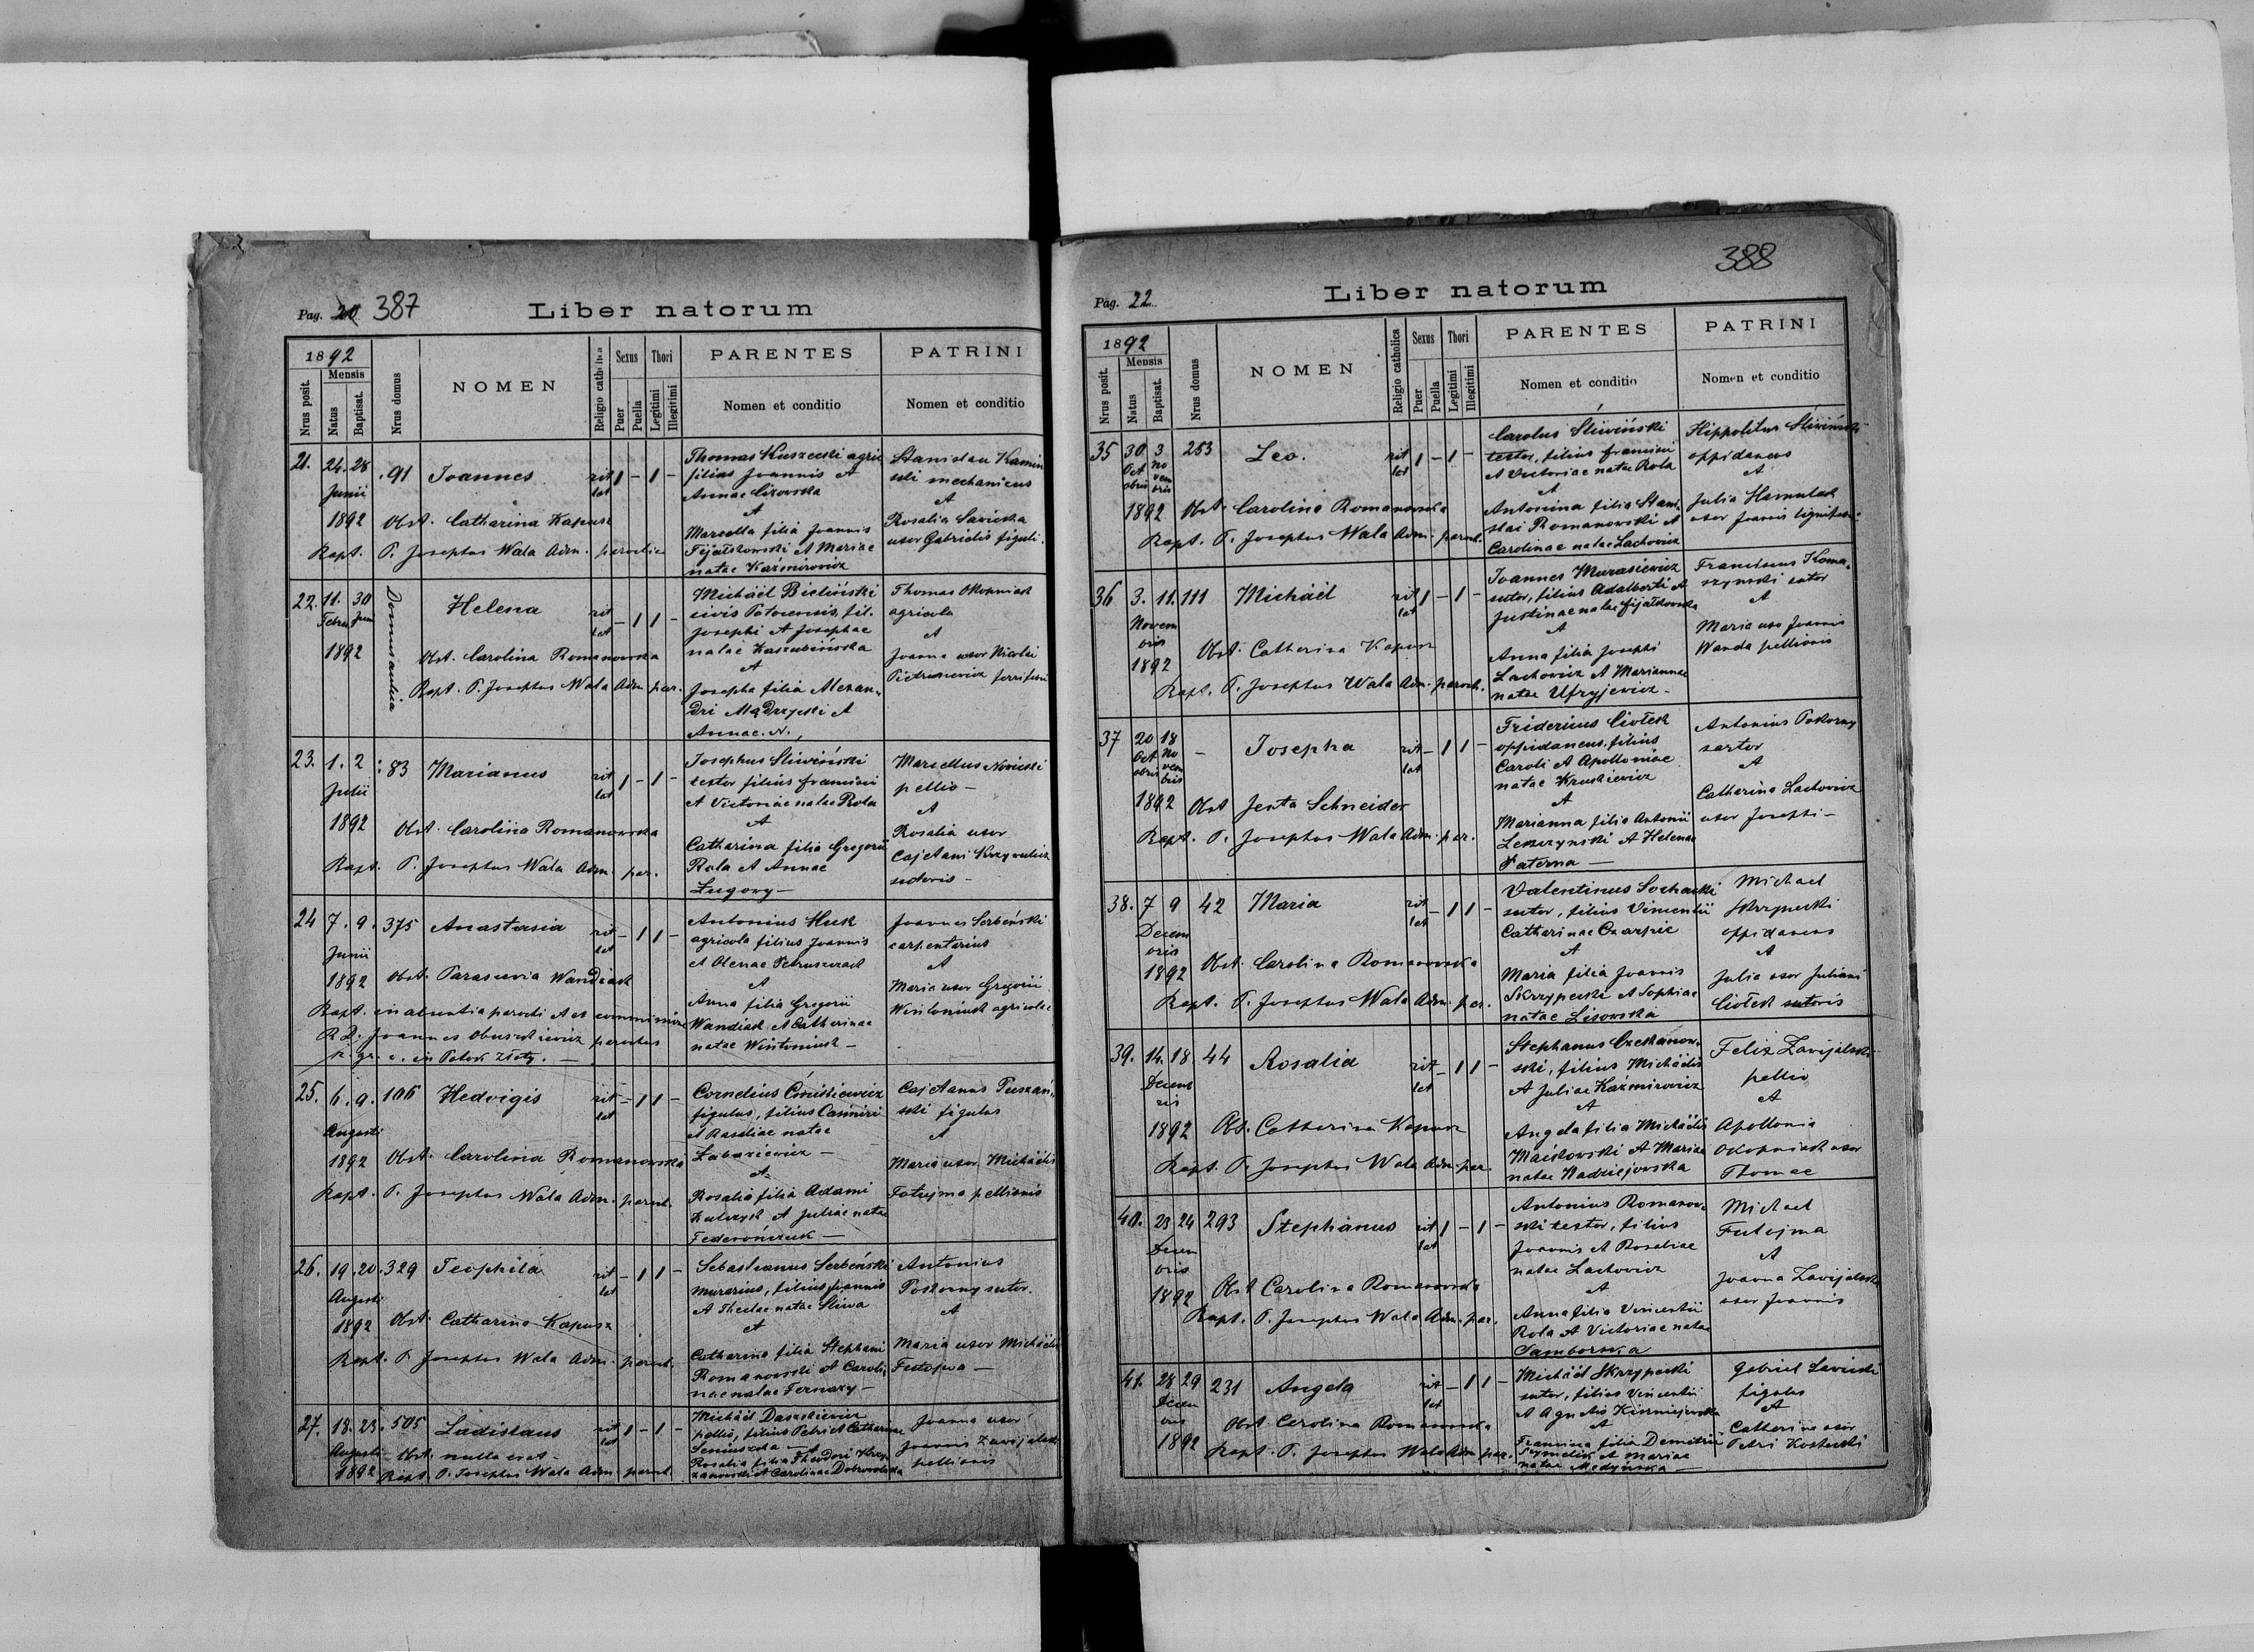 Pag. 20 387
Liber natorum
1892
Mensis
Nrus posit.
Natus
Baptisat.
Nrus domus
NOMEN
Religio catholica
Sexus
Puer
Puella
Thori
Legitimi
Illegitimi
PARENTES
Nomen et conditio
PATRINI
Nomen et conditio
21. 24. 28 Junii 1892
91
Joannes
rit lat
1 - 1 -
Thomas Kuszecki agric
filius Joannis et
Annae Lizowska
et
Marcella filia Joannis
Fijałkowski et Mariae
natae Kaźmirowicz
Stanislau Kamin
ski mechanicus
et
Rosalia Savicka
uxor Gabrielis figuli.
Obst. Catharina Kapusz
Bapt. P. Josephus Wala Adm. parochie
22. 11. 30 Febru Juni 1892
Domus aulica
Helena
rit lat
- 1 1 -
Michaël Bieliński
civis Potocensis, fil.
Josephi et Josephae
natae Kaszubińska
et
Josepha filia Alexan-
dri Mądrzycki et
Annae. N.,
Thomas Okopniak
agricola
et
Joanna uxor Nicolai
Obst. Carolina Romanowska
Bapt. P. Josephus Wala Adm. par.
23. 1. 2 Julii 1892
83
Marianus
rit lat
1 - 1 -
Josephus Śliwiński
textor filius Francisci
et Victoriae natae Rola
et
Catharina filia Gregorii
Rola et Annae
Ługowy -
Marcellus Novicki
pellio -
et
Rosalia uxor
Cajetani
sutoris -
Obst. Carolina Romanowska
Bapt. P. Josephus Wala Adm. par.
24 7. 9. Junii 1892
375
Anastasia
rit lat
- 1 1 -
Antonius Huk
agricola filius Joannis
et Olenae Petruszczak
et
Anna filia Gregorii
Wandiak et Catherinae
natae Wintoniuk -
Joannes Serbeński
carpentarius
et
Maria uxor Gregorii
Wintoniuk agricolae
Obst. Parascevia Wandiak
Bapt. in absentia parochi et ex commissione
R. D. Joannes parochus
r. gr. c. in Potok Złoty. -
25. 6. 9. Augusti 1892
106
Hedvigis
rit lat
- 1 1 -
Cornelius
figulus, filius Casimiri
et Rosaliae natae
et
Rosalia filia Adami
Kulczyk et Juliae natae
Federończuk -
Cajetanus
ski figulus
et
Maria uxor Michaëlis
Futujma pellionis
Obst. Carolina Romanowska
Bapt. P. Josephus Wala Adm. paroch.
26. 19. 20. Augusti 1892
329
Teophila
rit lat
- 1 1 -
Sebastianus Serbeński
murarius, filius Joannis
et Theclae natae Sliwa
et
Catharina filia Stephani
Romanowski et Caroli
nae natae Ternazy -
Antonius
Pokorny sutor.
et
Maria uxor Michaëlis
Futojma -
Obst. Catharina Kapusz
Bapt. P Josephus Wala Adm. paroch.
27. 18. 23. Augusti 1892
505
Ladislaus
rit lat
1 - 1 -
Michaël Daszkiewicz
pellio, filius Petri et Catharinae
et
Rosalia filia Theodori
et Carolinae Dobrowolska
Joanna uxor
Joannis Zawijalski
pellionis
Obst. nulla erat -
Bapt. P. Josephus Wala Adm. paroch.
388
Pag. 22.
Liber natorum
1892
Mensis
Nrus posit.
Natus
Baptisat.
Nrus domus
NOMEN
Religio catholica
Sexus
Puer
Puella
Thori
Legitimi
Illegitimi
PARENTES
Nomen et conditio
PATRINI
Nomen et conditio
35 30 Octobris 3 Novembris 1892
253
Leo.
rit lat
1 - 1 -
Carolus Śliwiński
textor, filius Francisci
et Victoriae natae Rola
et
Antonina filia Stani-
slai Romanowski et
Carolinae natae Lachowicz
Hippolitus Śliwiński
oppidaneus
et
Julia Hamulak
uxor Joannis lignifabri
Obst. Carolina Romanowska
Bapt. P. Josephus Wala Adm. paroch.
36 3. 11. Novembris 1892
111
Michaël
rit lat
1 - 1 -
Joannes Murasiewicz
sutor, filius Adalberti et
Justinae natae Fijałkowska
et
Anna filia Josephi
Lachowicz et Mariannae
natae Ufryjewicz -
Franciscus Toma-
szynski sutor
et
Maria uxo Joannis
Wanda pellionis
Obst. Catherina Kapusz
Bapt. P. Josephus Wala Adm. paroch.
37 20 Octobris 18 Novembris 1892
-
Josepha
rit lat
- 1 1 -
Fridericus Ciołek
oppidaneus, filius
Caroli et Apolloniae
natae Kruskiewicz
et
Marianna filia Antonii
Leszczynski et Helenae
Paterna -
Antonius Pokorny
sartor
et
Catharina Lachowicz
uxor Josephi -
Obst Jenta Schneider
Bapt. P. Josephus Wala Adm. par.
38. 7 9 Decembris 1892
42
Maria
rit lat
- 1 1 -
Valentinus Sochacki
sutor, filius Vincentii
Catharinae Czarpie
et
Maria filia Joannis
Skrzypecki et Sophiae
natae Lisowska
Michael
Skrzypecki
oppidaneus
et
Julia uxor Juliani
Ciołek sutoris
Obst. Carolina Romanowska
Bapt. P. Josephus Wala Adm. par.
39. 14. 18. Decembris 1892
44
Rosalia
rit lat
- 1 1 -
Stephanus Czekanow-
ski, filius Michaëlis
et Juliae Kaźmirowicz
et
Angela filia Michaëlis
Maćkowski et Mariae
natae Nadziejowska
Felix Zawijalski
pellio
et
Apollonia
Okopniak uxor
Thomae
Obst. Catherina Kapusz
Bapt. P. Josephus Wala Adm. par.
40. 23 24 Decembris 1892
293
Stephanus
rit lat
1 - 1 -
Antonius Romanow-
ski textor, filius
Joannis et Rosaliae
natae Lachowicz
et
Anna filia Vincentii
Rola et Victoriae natae
Samborska
Michael
Futojma
et
Joanna Zawijalska
uxor Joannis
Obst Carolina Romanowska
Bapt. P. Josephus Wala Adm. par.
41. 28 29 Decembris 1892
231
Angela
rit lat
- 1 1 -
Michaël Skrzypecki
sutor, filius Vincentii
et Agnetis
et
Francisca filia Demetrii
Szymelik et Mariae
natae Medyńska -
Gabriel Savicki
figulus
et
Catherina uxor
Petri Kostecki
Obst Carolina Romanowska
Bapt. P. Josephus Wala Adm. par.